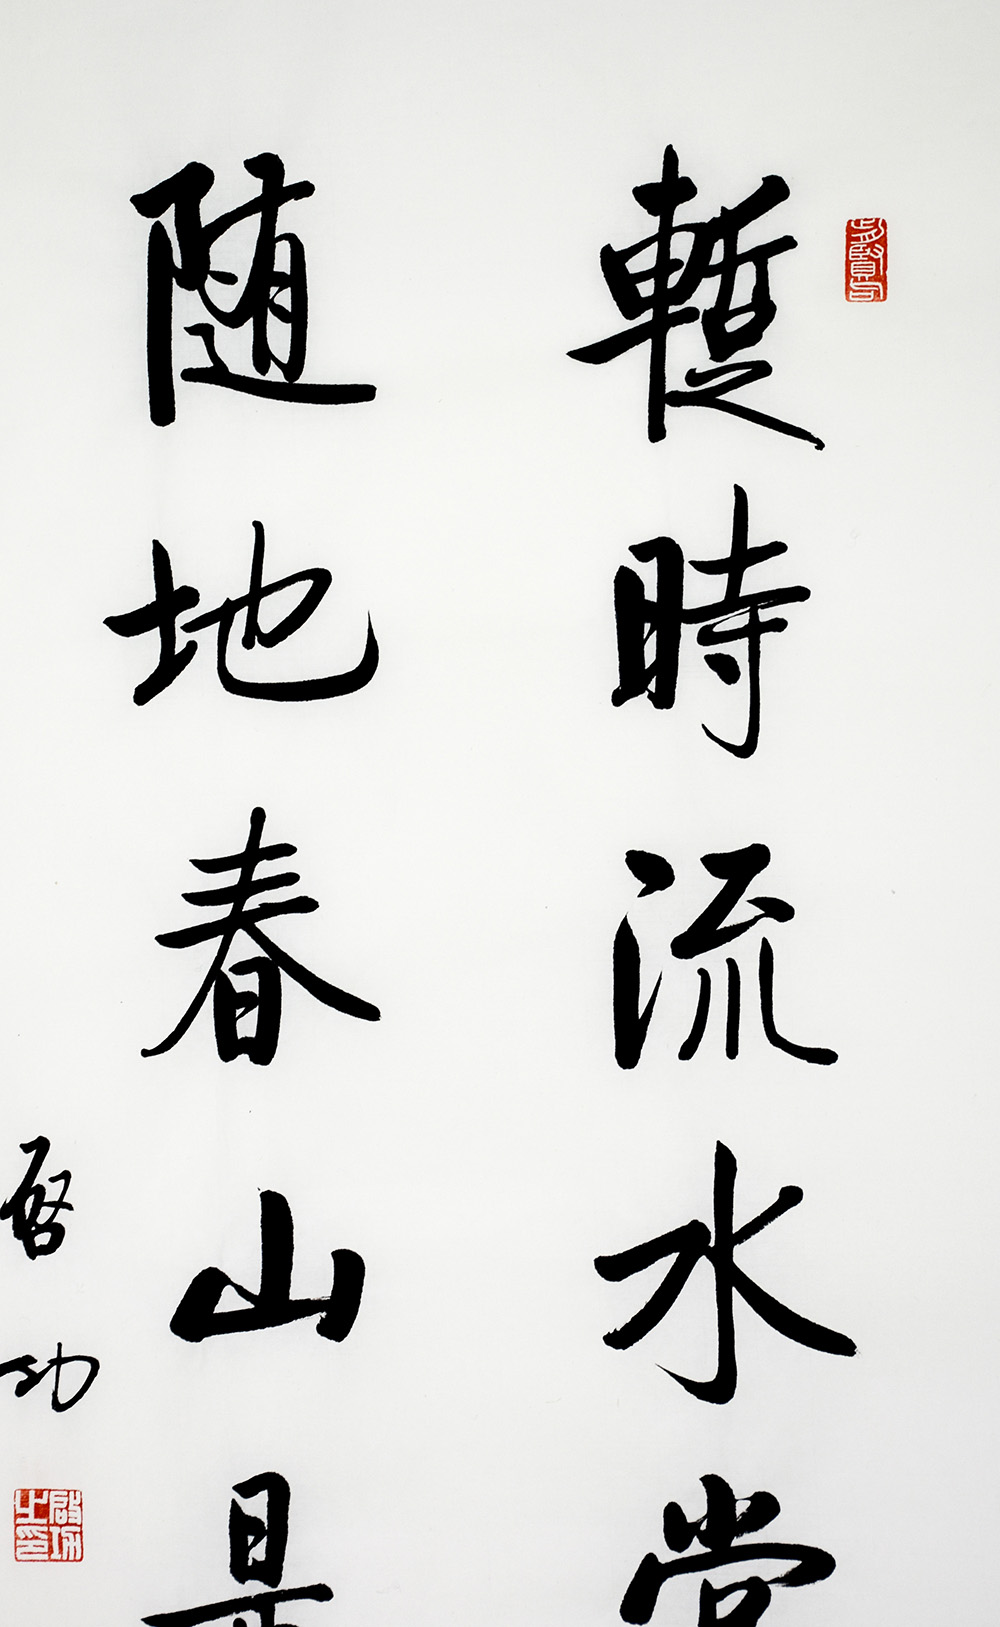 暫時流水當
随地春山是
啓功
啓功之印